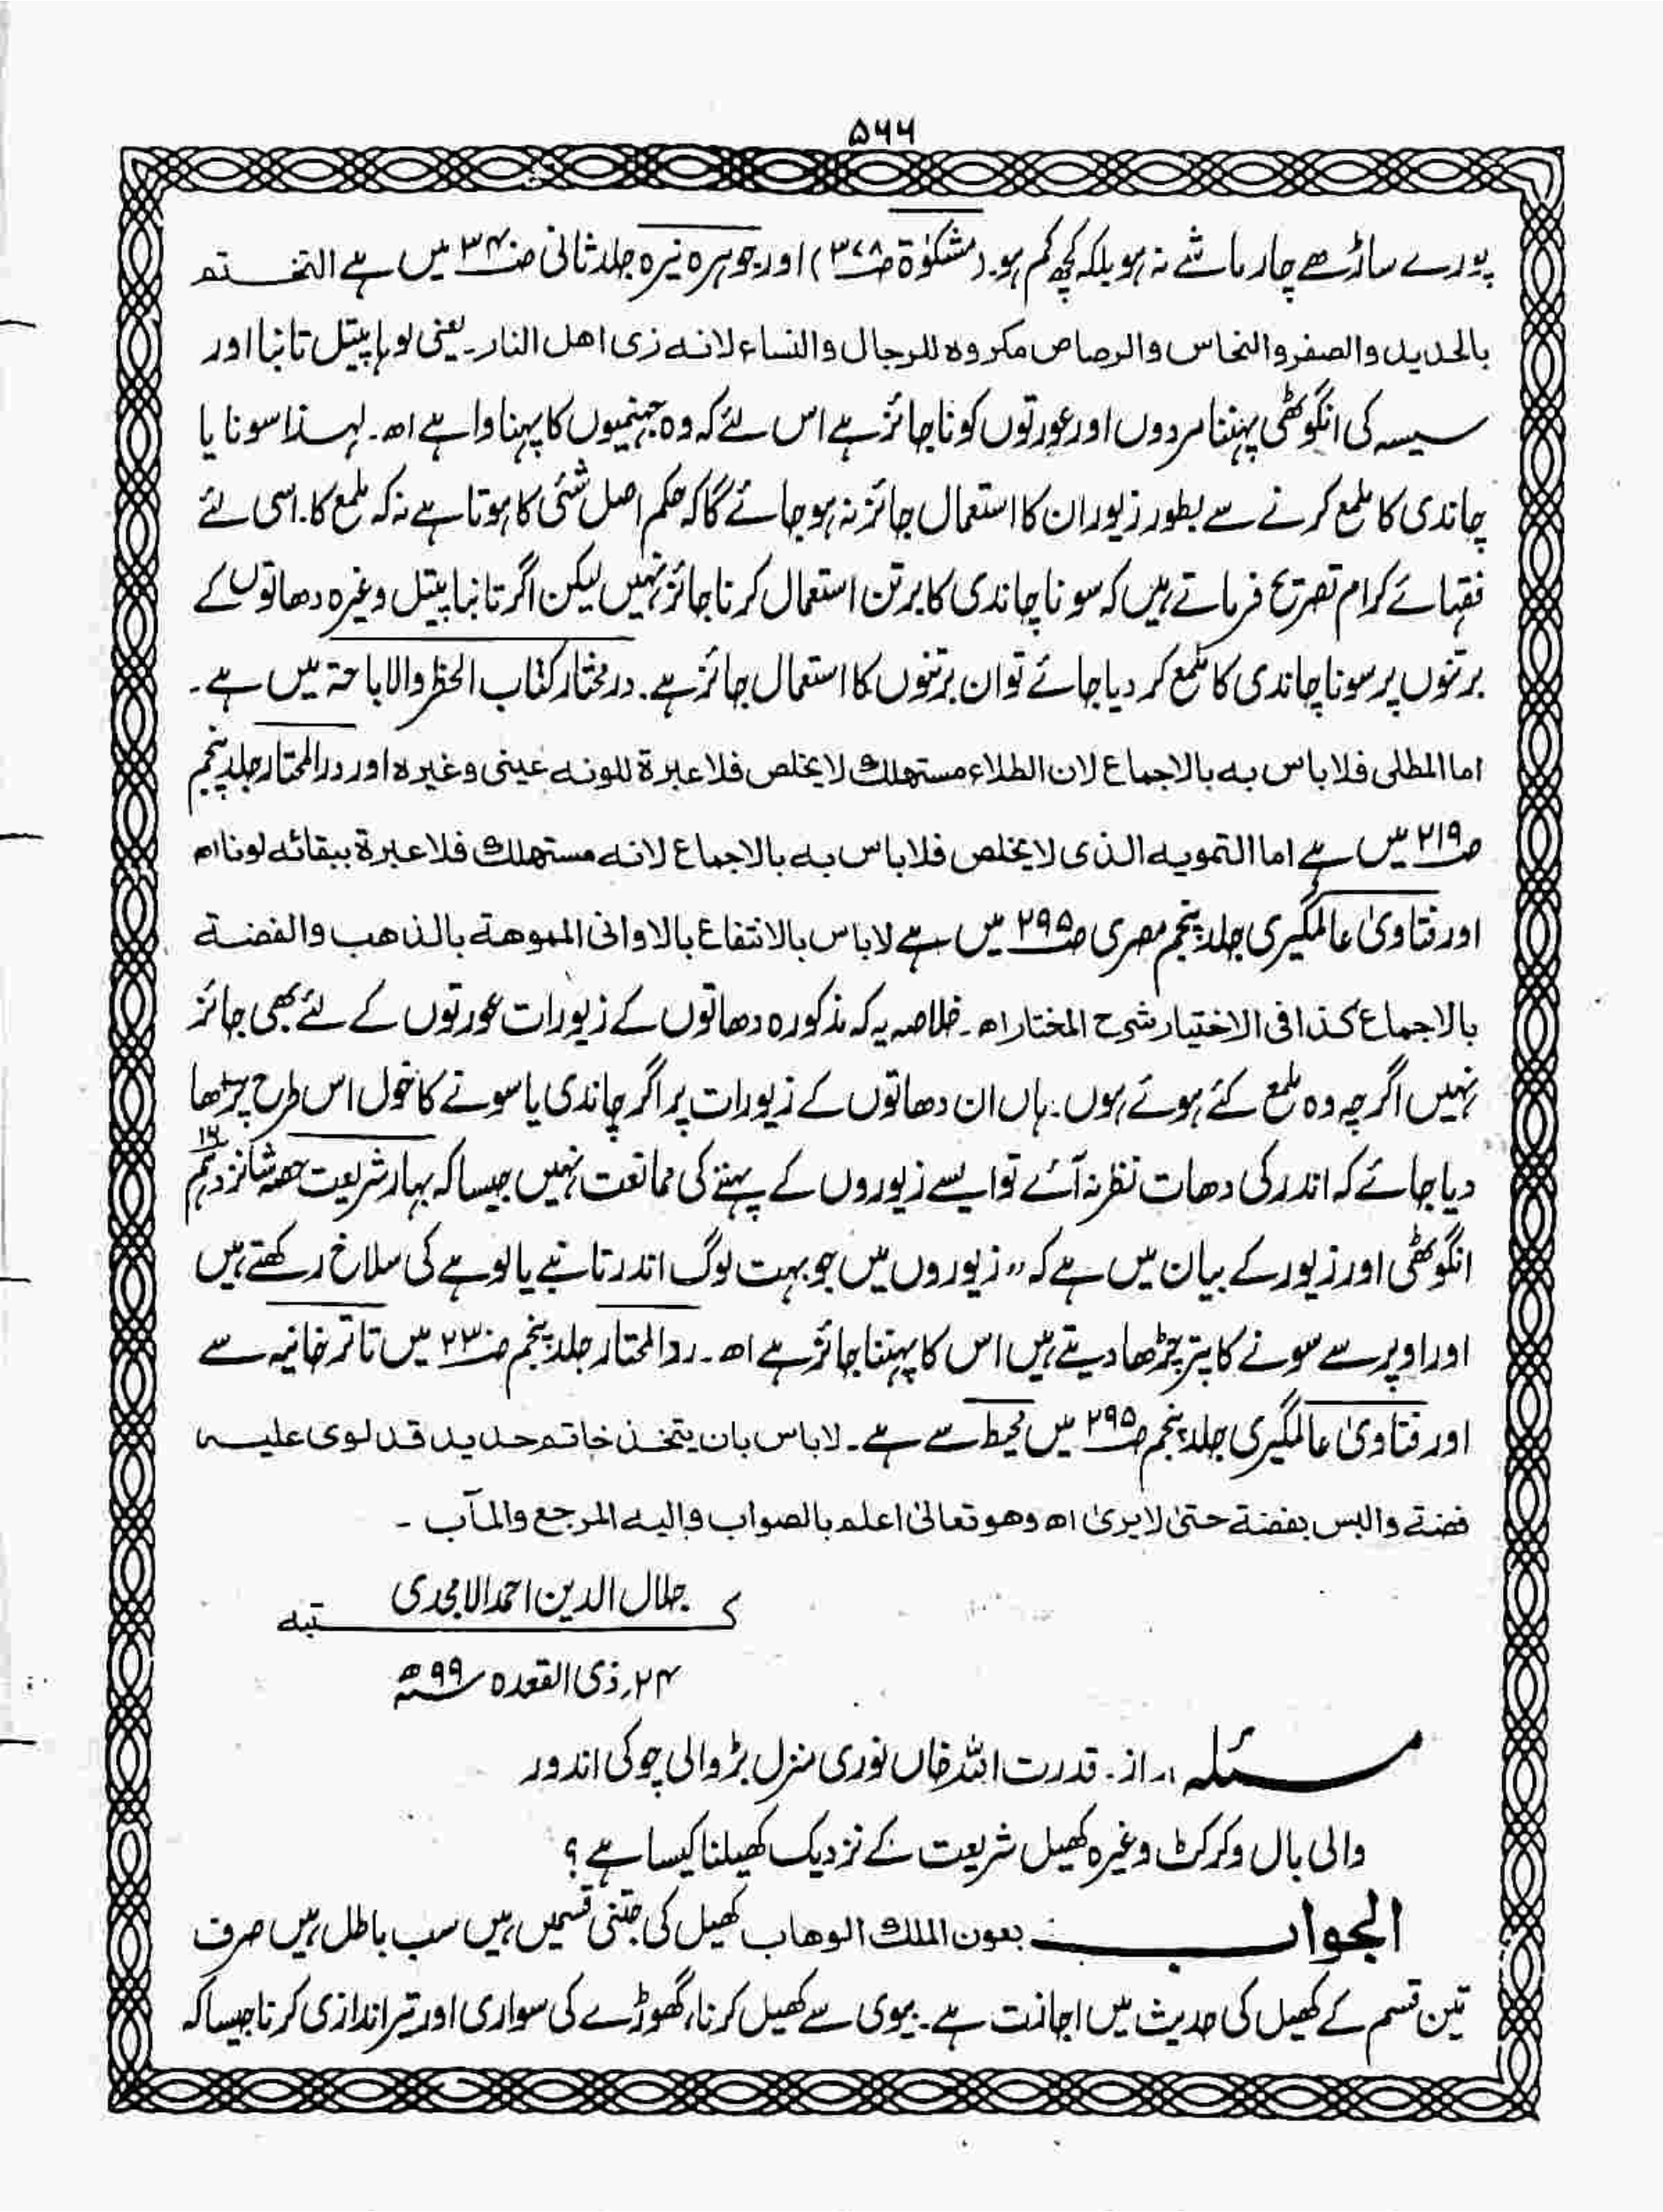 ۵۶۶
پورے ساڑھے چار ماشے نہ ہو بلکہ کچھ کم ہو۔ (مشکوٰۃ صـ۳۷۸) اور جوہرہ نیرہ جلد ثانی صـ۳۴ میں ہے التختم
بالحدید والصفر والنحاس والرصاص مکروہ للرجال والنساء لانہ زی اھل النار۔ یعنی لوہا پیتل تانبا اور
سیسہ کی انگوٹھی پہننا مردوں اور عورتوں کو ناجائز ہے اس لئے کہ وہ جہنمیوں کا پہناوا ہے اھ۔ لہذا سونا یا
چاندی کا ملمع کرنے سے بطور زیور ان کا استعمال جائز نہ ہو جائے گا کہ حکم اصل شئی کا ہوتا ہے نہ کہ ملمع کا۔ اسی لئے
فقہائے کرام تصریح فرماتے ہیں کہ سونا چاندی کا برتن استعمال کرنا جائز نہیں لیکن اگر تانبا پیتل وغیرہ دھاتوں کے
برتنوں پر سونا چاندی کا ملمع کر دیا جائے تو ان برتنوں کا استعمال جائز ہے۔ درمختار کتاب الحظر والاباحۃ میں ہے۔
اما المطلی فلا باس بہ بالاجماع لان الطلاء مستھلک لا یخلص فلا عبرۃ للونہ عینی وغیرہ اور ردالمحتار جلد پنجم
صـ۲۱۹ میں ہے اما التمویہ الذی لا یخلص فلا باس بہ بالاجماع لانہ مستھلک فلا عبرۃ ببقائہ لونا اھ
اور فتاویٰ عالمگیری جلد پنجم مصری صـ۲۹۵ میں ہے لا باس بالانتفاع بالاوانی المموھۃ بالذھب والفضۃ
بالاجماع کذا فی الاختیار شرح المختار اھ۔ خلاصہ یہ کہ مذکورہ دھاتوں کے زیورات عورتوں کے لئے بھی جائز
نہیں اگرچہ وہ ملمع کئے ہوئے ہوں۔ ہاں ان دھاتوں کے زیورات پر اگر چاندی یا سونے کا خول اس طرح چڑھا
دیا جائے کہ اندر کی دھات نظر نہ آئے تو ایسے زیوروں کے پہننے کی ممانعت نہیں جیسا کہ بہار شریعت حصہ شانزدہم ۱۶
انگوٹھی اور زیور کے بیان میں ہے کہ ،، زیوروں میں جو بہت لوگ اندر تانبے یا لوہے کی سلاخ رکھتے ہیں
اور اوپر سے سونے کا پتر چڑھا دیتے ہیں اس کا پہننا جائز ہے اھ۔ ردالمحتار جلد پنجم صـ۲۳۰ میں تاترخانیہ سے
اور فتاویٰ عالمگیری جلد پنجم صـ۲۹۵ میں محیط سے ہے۔ لا باس بان یتخذ خاتم حدید قد لوی علیہ
فضۃ والبس بفضۃ حتیٰ لا یریٰ اھ وھو تعالیٰ اعلم بالصواب والیہ المرجع والمآب۔
جلال الدین احمد الامجدی
کتبہ
۲۴؍ ذی القعدہ سنہ ۹۹ھ
مسئلہ :۔ از۔ قدرت اللہ خاں نوری منزل بڑوالی چوکی اندور
والی بال و کرکٹ وغیرہ کھیل شریعت کے نزدیک کھیلنا کیسا ہے؟
الجواب بعون الملک الوھاب کھیل کی جتنی قسمیں ہیں سب باطل ہیں صرف
تین قسم کے کھیل کی حدیث میں اجازت ہے۔ بیوی سے کھیل کرنا، گھوڑے کی سواری اور تیر اندازی کرنا جیسا کہ